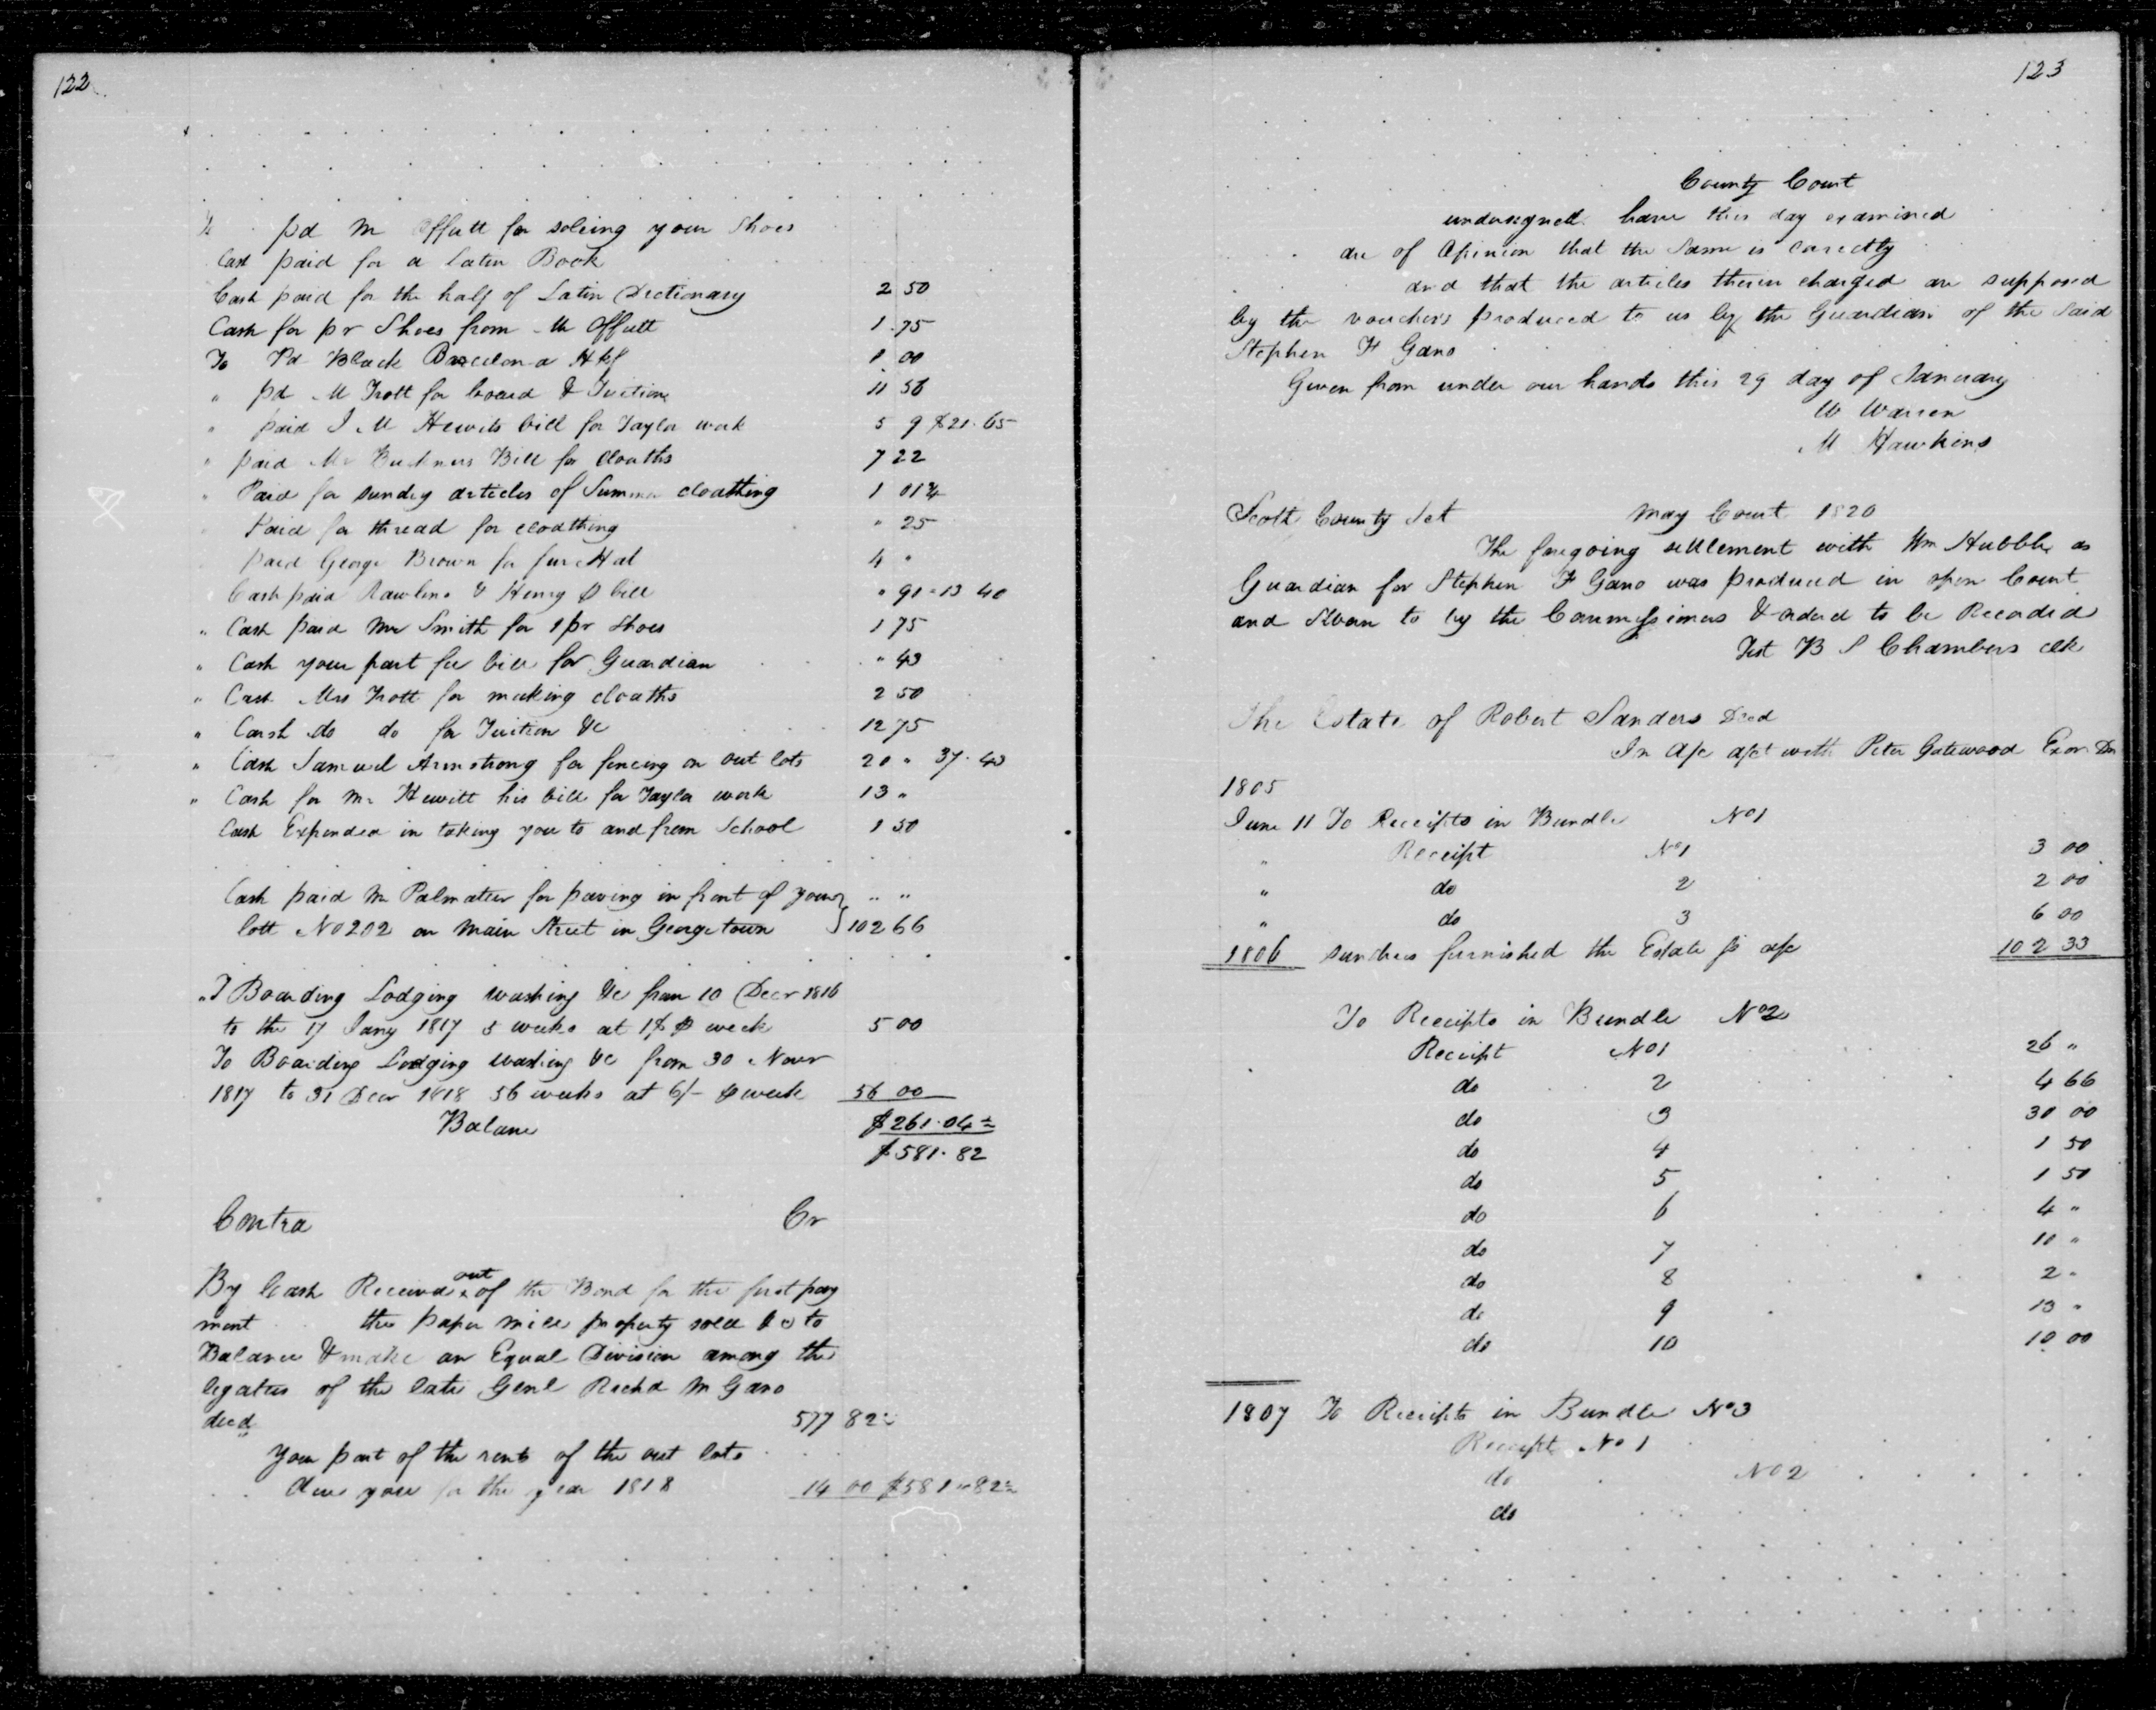 122
pd Mr Offutt for soleing your Shoes
Cash paid for a Latin Book
Cash paid for the half of Latin Dictionary 2 50
Cash for pr Shoes from Mr Offutt 1.75
To Pd Black Barcelona Hkf 1.00
" pd Mr Trott for board & Tuition 11 50
" paid I M Hewits bill for Taylor work 5 9 $21.65
" paid Mr Buckners Bill for Cloaths 7 22
" Paid for sundry articles of Summer cloathing 1 01¾
" Paid for thread for cloathing " 25
paid George Brown for fur Hat 4 "
Cash paid Rawlins & Henry bill " 91 = 13 40
" Cash paid Mr Smith for 1 pr Shoes 1 75
" Cash your part fee bill for Guardian " 43
" Cash Mrs Trott for making cloaths 2 50
" Cash do do for Tuition &c 12 75
" Cash Samuel Armstrong for fencing on out lots 20 " 37.43
" Cash for Mr Hewitt his bill for Taylor work 13 "
Cash Expended in taking you to and from School 1 50
Cash paid Mr Palmatier for paving in front of your " "
lott No 202 on Main Street in Georgetown 102 66
" Boarding Lodging washing &c from 10 Decr 1816
to the 17 Jany 1817 5 weeks at 1$ ⅌ week 5 00
To Boarding Lodging washing &c from 30 Novr
1817 to 31 Decr 1818 56 weeks at 6/- ⅌ week 56 00
Balance $261.04
$581.82
Contra Cr
By Cash Received out of the Bond for the first pay
ment the paper mill property sold to
Balance & make an Equal Division among the
legatees of the late Genl Richd M Gano
decd 577 82
your part of the rents of the out lots
due you for the year 1818 14 00 $581 " 82
123
County Court
undersigned have this day examined
are of Opinion that the Same is Carectly
and that the articles therein charged are supposed
by the vouchers produced to us by the Guardian of the Said
Stephen F Gano
Given from under our hands this 29 day of January
W Warren
M Hawkins
Scott County Sct May Court 1820
The foregoing settlement with Wm Hubble as
Guardian for Stephen F Gano was produced in open Court
and Sworn to by the Commissioners & ordered to be Recorded
Test B S Chambers clk
The Estate of Robert Sanders Decd
In A/c a/ct with Peter Gatewood Exor Dr
1805
June 11 To Receipts in Bundle No 1
" Receipt No 1 3 00
" do 2 2 00
" do 3 6 00
1806 sundries furnished the Estate pr a/c 102 33
To Receipts in Bundle No 2
Receipt No 1 26 "
do 2 4 66
do 3 30 00
do 4 1 50
do 5 1 50
do 6 4 "
do 7 10 "
do 8 2 "
do 9 13 "
do 10 10 00
1807 To Receipts in Bundle No 3
Receipt No 1
do No 2
do